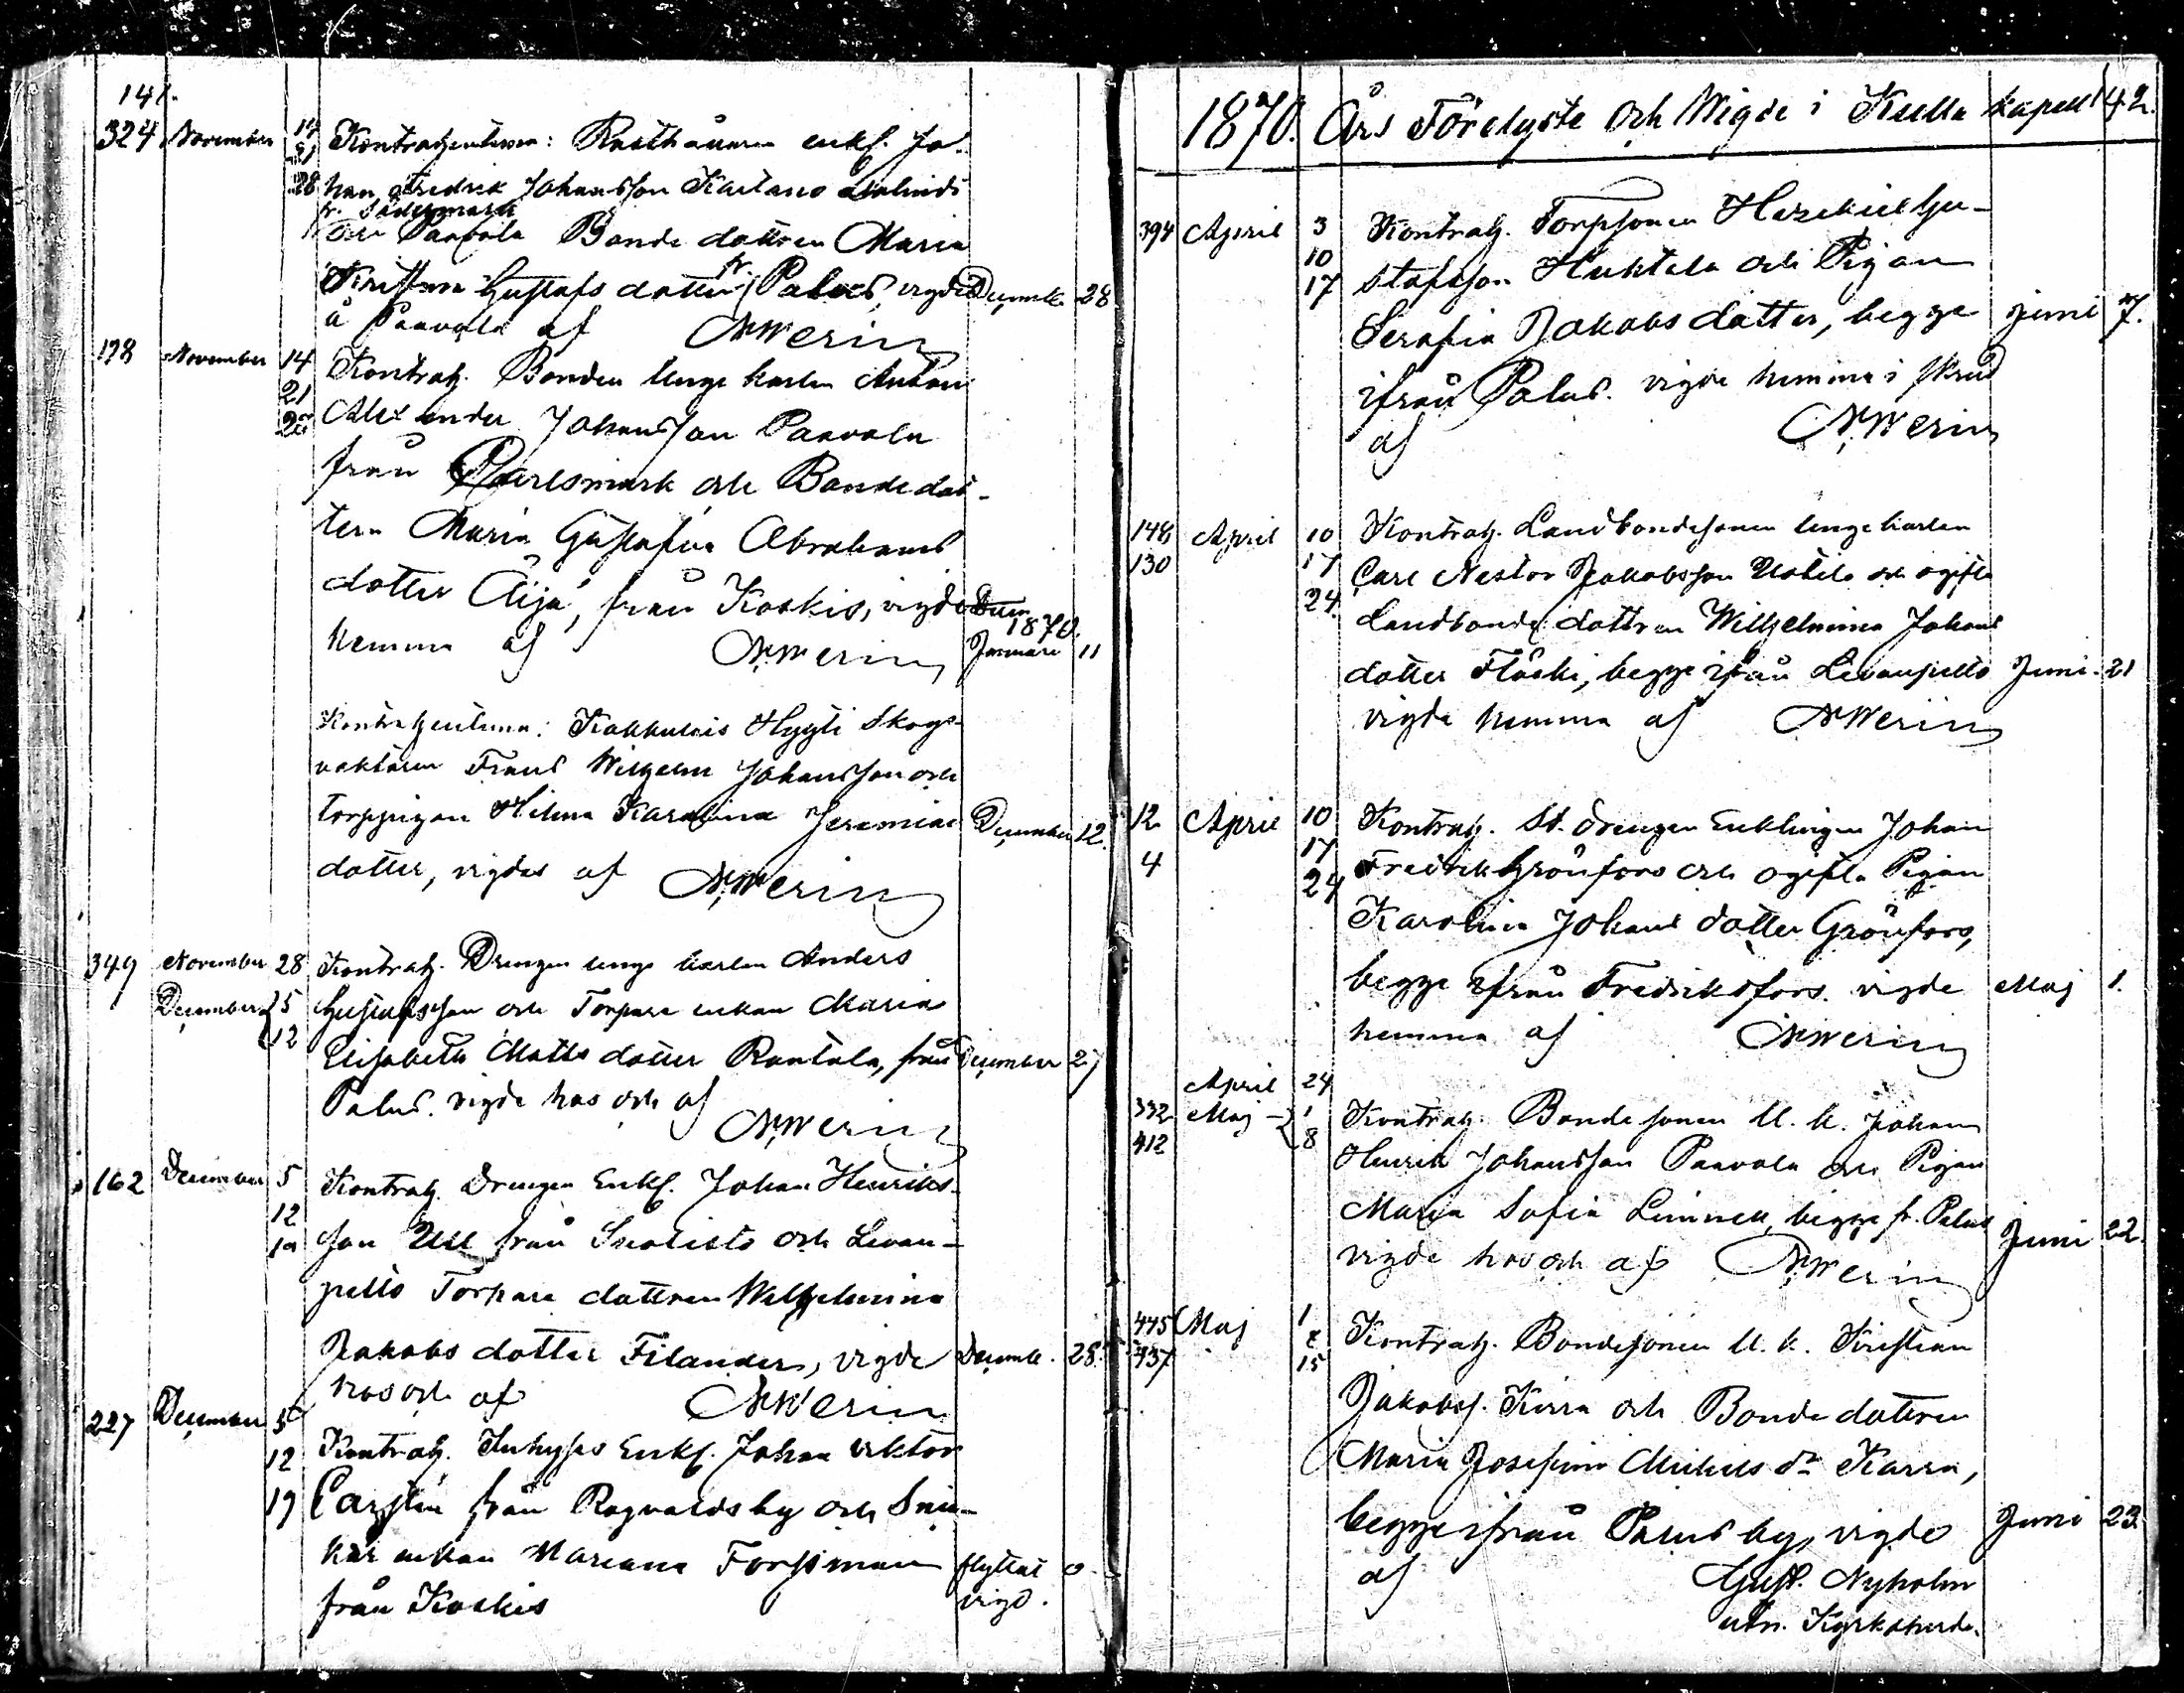 141.
324. November 14 Kontrahenterna: Rusthållaren enkl. Jo-
21
28 han Fredrik Johansson Kaitano Malinds
fr. Södermark
och Paavola Bonde dottren Maria
Gustafs dotter fr. Palus, vigde Decemb. 28
å Paavola af NWerin
178 November 14 Kontrah. Bonden Unge karlen Anton
21
28 Alexander Johansson Paavola
från och Bonde dot-
tern Maria Gustafva Abrahams
dotter Äijä, från Koskis, vigde Decem
1870.
hemma af NWerin Januari 11
Kontrahenterna: Kokkulais Hygti Skogs-
vaktaren Frans Wilhelm Johansson och
torppigan Hilma Karolina Jeremias December 12.
dotter, vigdes af NWerin
349 November 28 Kontrah. Drengen unge karlen Anders
December 5 Gustafsson och Torpare enkan Maria
12
Elisabeth Matts dotter Rantala, från December 27
Palus. vigde hos och af
NWerin
162 December 5 Kontrah. Drengen Enkl. Johan Henriks-
12
19 son Ull från och Levan-
pelto Torpare dottren Wilhelmina
Jakobs dotter Filander, vigde Decemb. 28.
hos och af NWerin
227 December 5
12 Kontrah. Inhyses Enkl. Johan Viktor
19 från Ragvaldsby och Snic-
kar enkan Mariana Forssman flyttat o
från Koskis vigd.
1870. Års Förelyste och Wigde i Kapell 142.
394 April 3 Kontrah. Torpsonen Hesekiel Gu-
10
17 stafsson Huktala och Pigan
Serafia Jakobs dotter, begge Juni 7.
ifrån Palus. vigde hemma i skrud
af NWerin
148 April 10 Kontrah. Landbondesonen Unge karlen
130 17 Carl Nestor Jakobsson Uotila och ogifta
24. Landbonde dottren Wilhelmina Johans
dotter Flöski, begge ifrån Levanpelto Juni. 21
vigde hemma af NWerin
12 April 10 Kontrah. St. drengen Enklingen Johan
17
4 Fredrik Grönfors och ogifta Pigan
24
Karolina Johans dotter Grönfors,
begge ifrån Fredriksfors. vigde Maj 1.
hemma af NWerin
April 24
332 Maj 1 Kontrah. Bondesonen U. k. Johan
412 8
Henrik Johansson Paavola och Pigan
Maria Sofia Limnell, begge fr. Palus
Juni 22.
vigde hos och af NWerin
445 Maj 1
437 8 Kontrah. Bondesonen U. k. Kristian
15
Jakobs. Kirra och Bonde dottren
Maria Josefina Mickels dr Karra,
begge ifrån Palus by, vigde Juni 23.
af Gust. Nyholm
utn. Kyrkoherde.